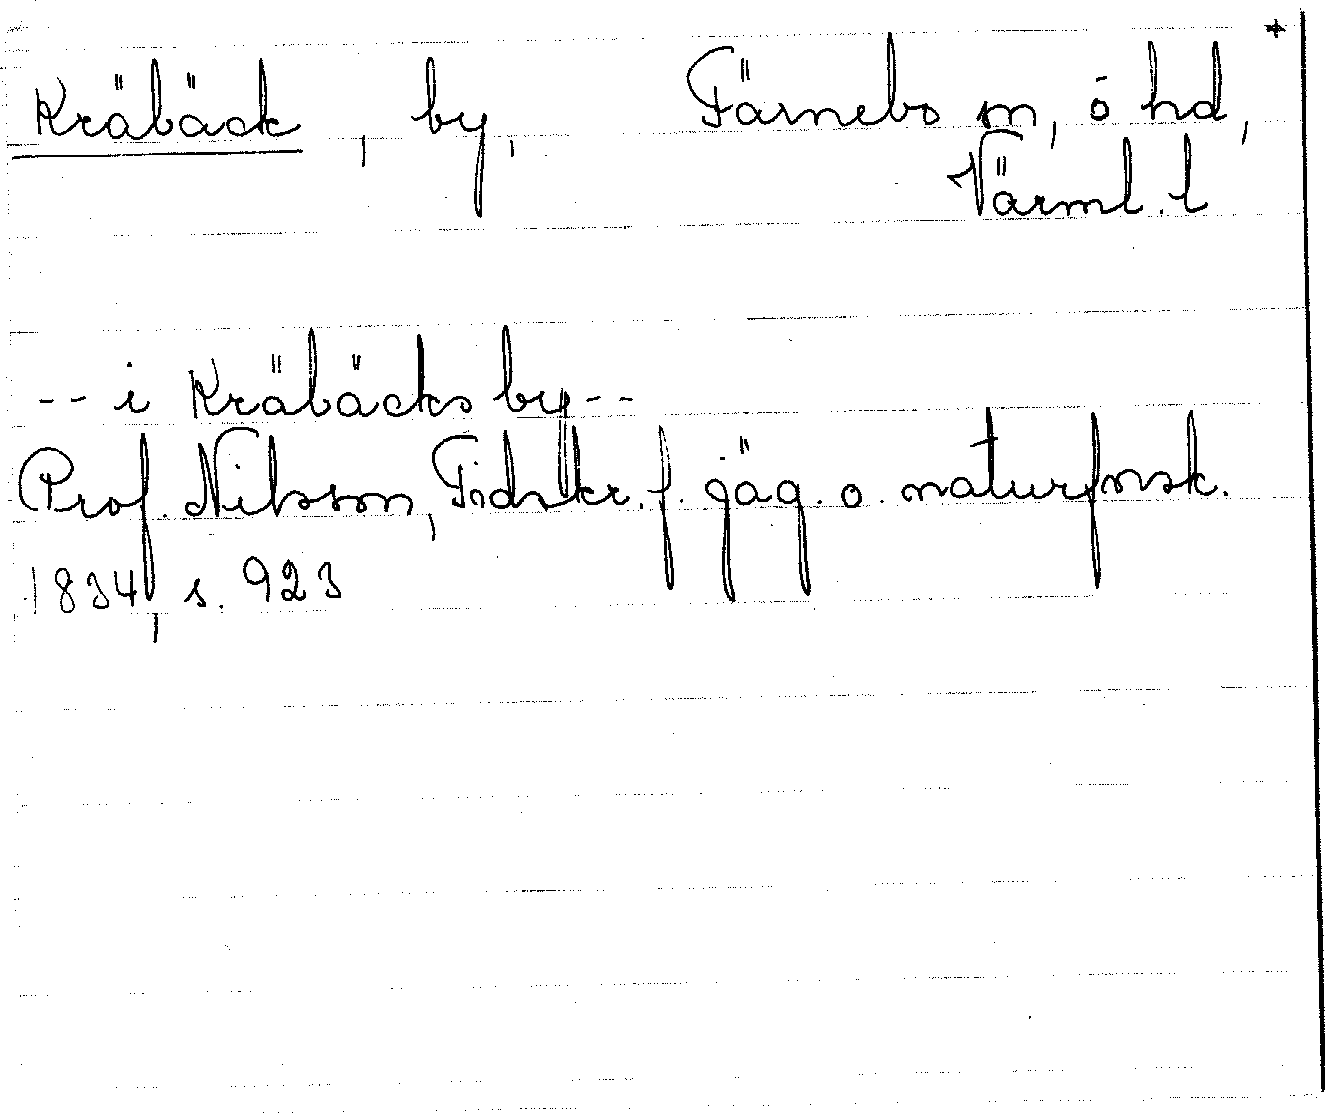 Kräbäck, by, Färnebo sn, ö hd, +
Värml. l
-- i Kräbäcks by --
Prof. Nilsson, Tidskr. f. jäg. o. naturforsk.
1834, s. 923